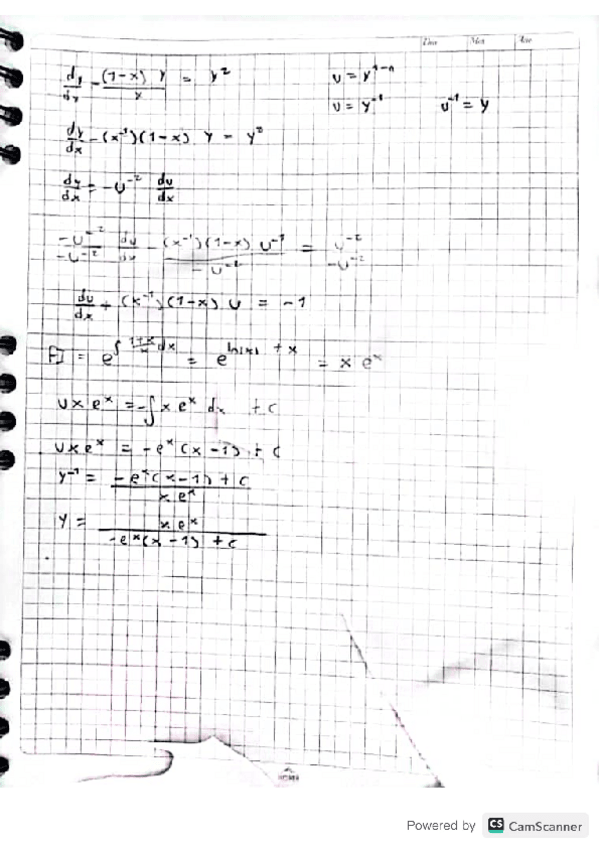 dy/dx - (1-x) y / x = y²    u = y^(1-n)
u = y⁻¹    u⁻¹ = y
dy/dx - (x⁻¹)(1-x) y = y²
dy/dx = -u⁻² du/dx
-u⁻²/-u⁻² du/dx - (x⁻¹)(1-x) u⁻¹ / -u⁻² = u⁻²/-u⁻²
du/dx + (x⁻¹)(1-x) u = -1
FI = e^(∫ (1+x)/x dx) = e^(ln|x| + x) = x eˣ
u x eˣ = -∫ x eˣ dx + c
u x eˣ = -eˣ (x-1) + c
y⁻¹ = (-eˣ(x-1) + c) / (x eˣ)
y = x eˣ / (-eˣ(x-1) + c)
Powered by CS CamScanner